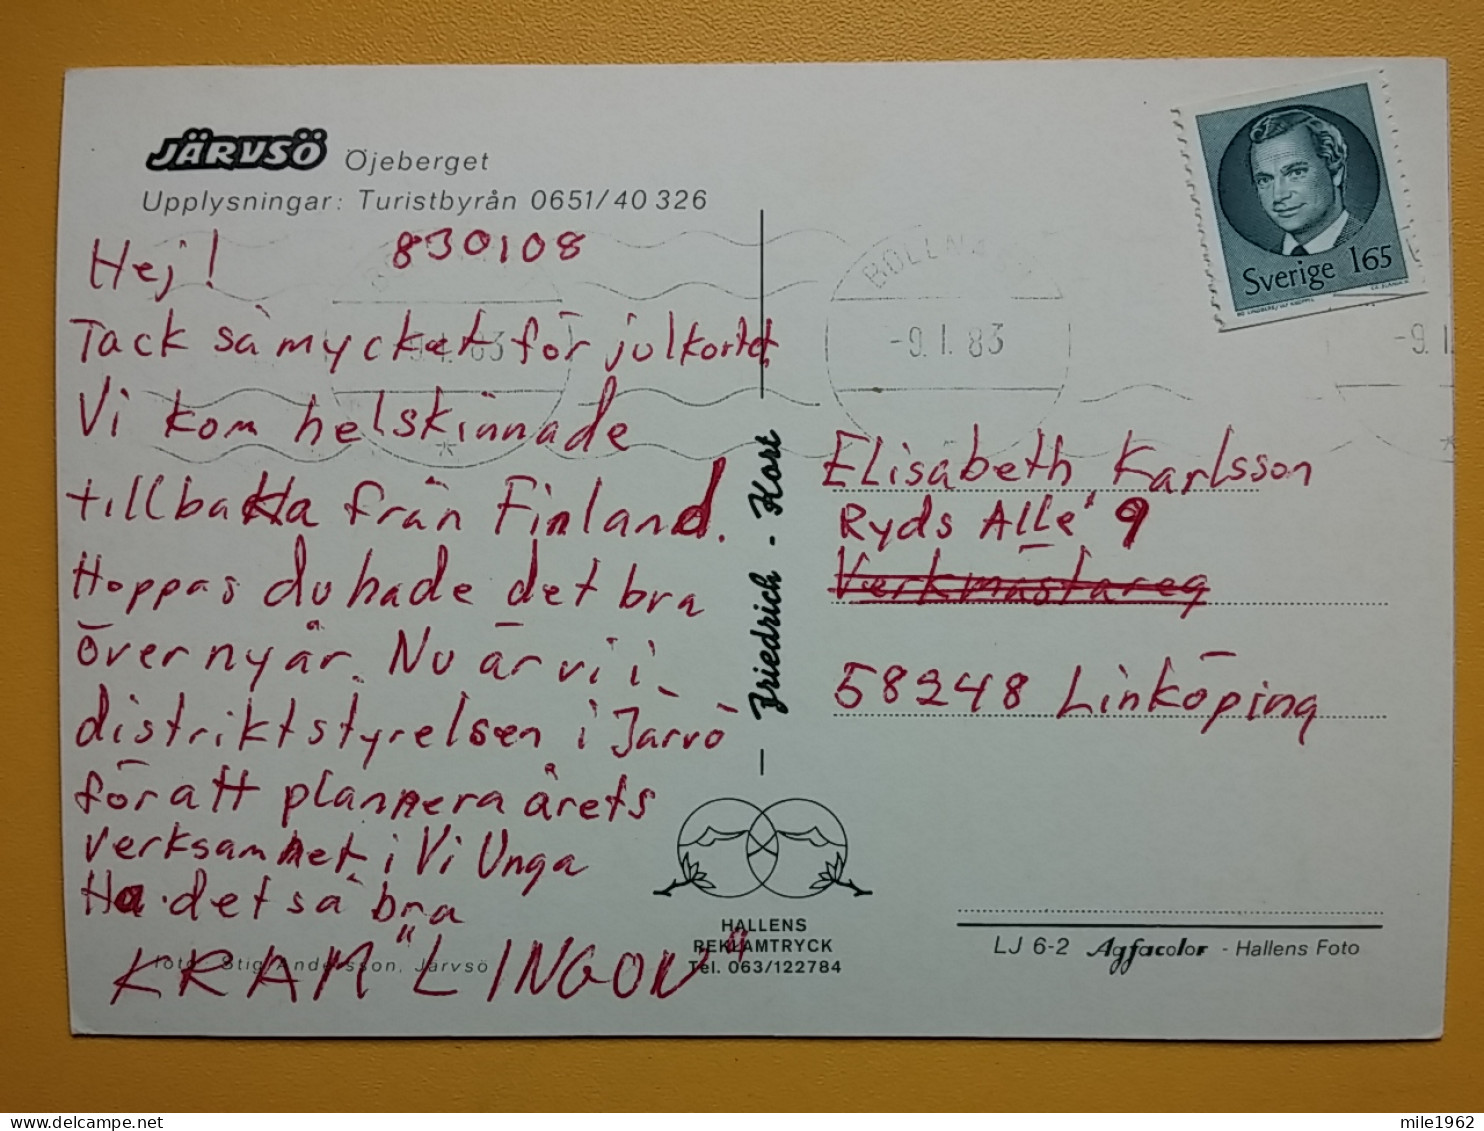 JÄRVSÖ Öjeberget
Upplysningar: Turistbyrån 0651/40 326
Hej! 830108
Tack så mycket för julkortet
Vi kom helskinnade
tillbaka från Finland.
Hoppas du hade det bra
över nyår. Nu är vi i
distriktstyrelsen i Järvö
för att plannera årets
verksamhet i Vi Unga
Ha det så bra
KRAM "LINGON"
foto Stig Andersson, Järvsö
Friedrich - Kort
HALLENS
REKLAMTRYCK
Tel. 063/122784
Sverige 165
BOLLNÄS
-9.1.83
-9.1.
Elisabeth Karlsson
Ryds Allé 9
Verkmästareg
58248 Linköping
LJ 6-2 Agfacolor - Hallens Foto
mile1962